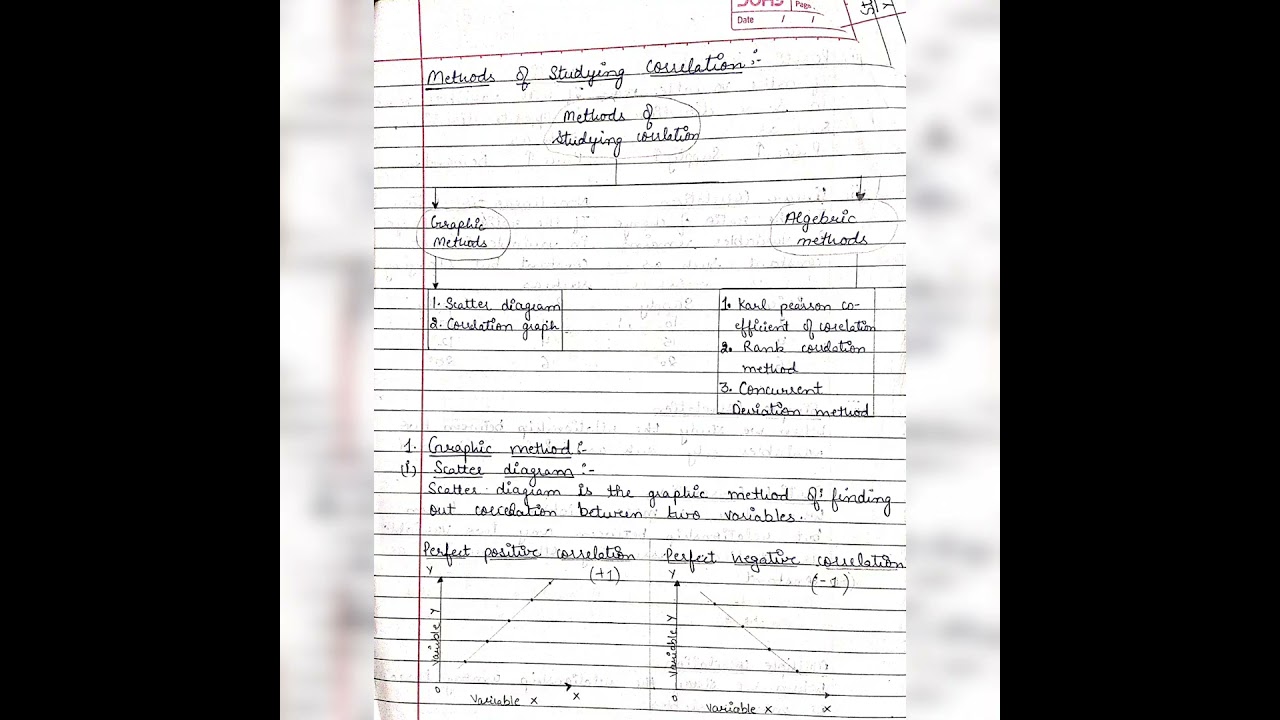 Page.
Date / /
Methods of Studying Correlation:-
Methods of
Studying correlation
Graphic
Methods
Algebric
methods
1. Scatter diagram
2. Correlation graph
1. Karl pearson co-
efficient of corelation
2. Rank correlation
method
3. Concurrent
Deviation method
1. Graphic method:-
(i) Scatter diagram:-
Scatter diagram is the graphic method of finding
out correlation between two variables.
Perfect positive correlation
(+1)
Y
Variable Y
0
X
Variable X
Perfect negative correlation
(-1)
Y
Variable Y
0
X
Variable X